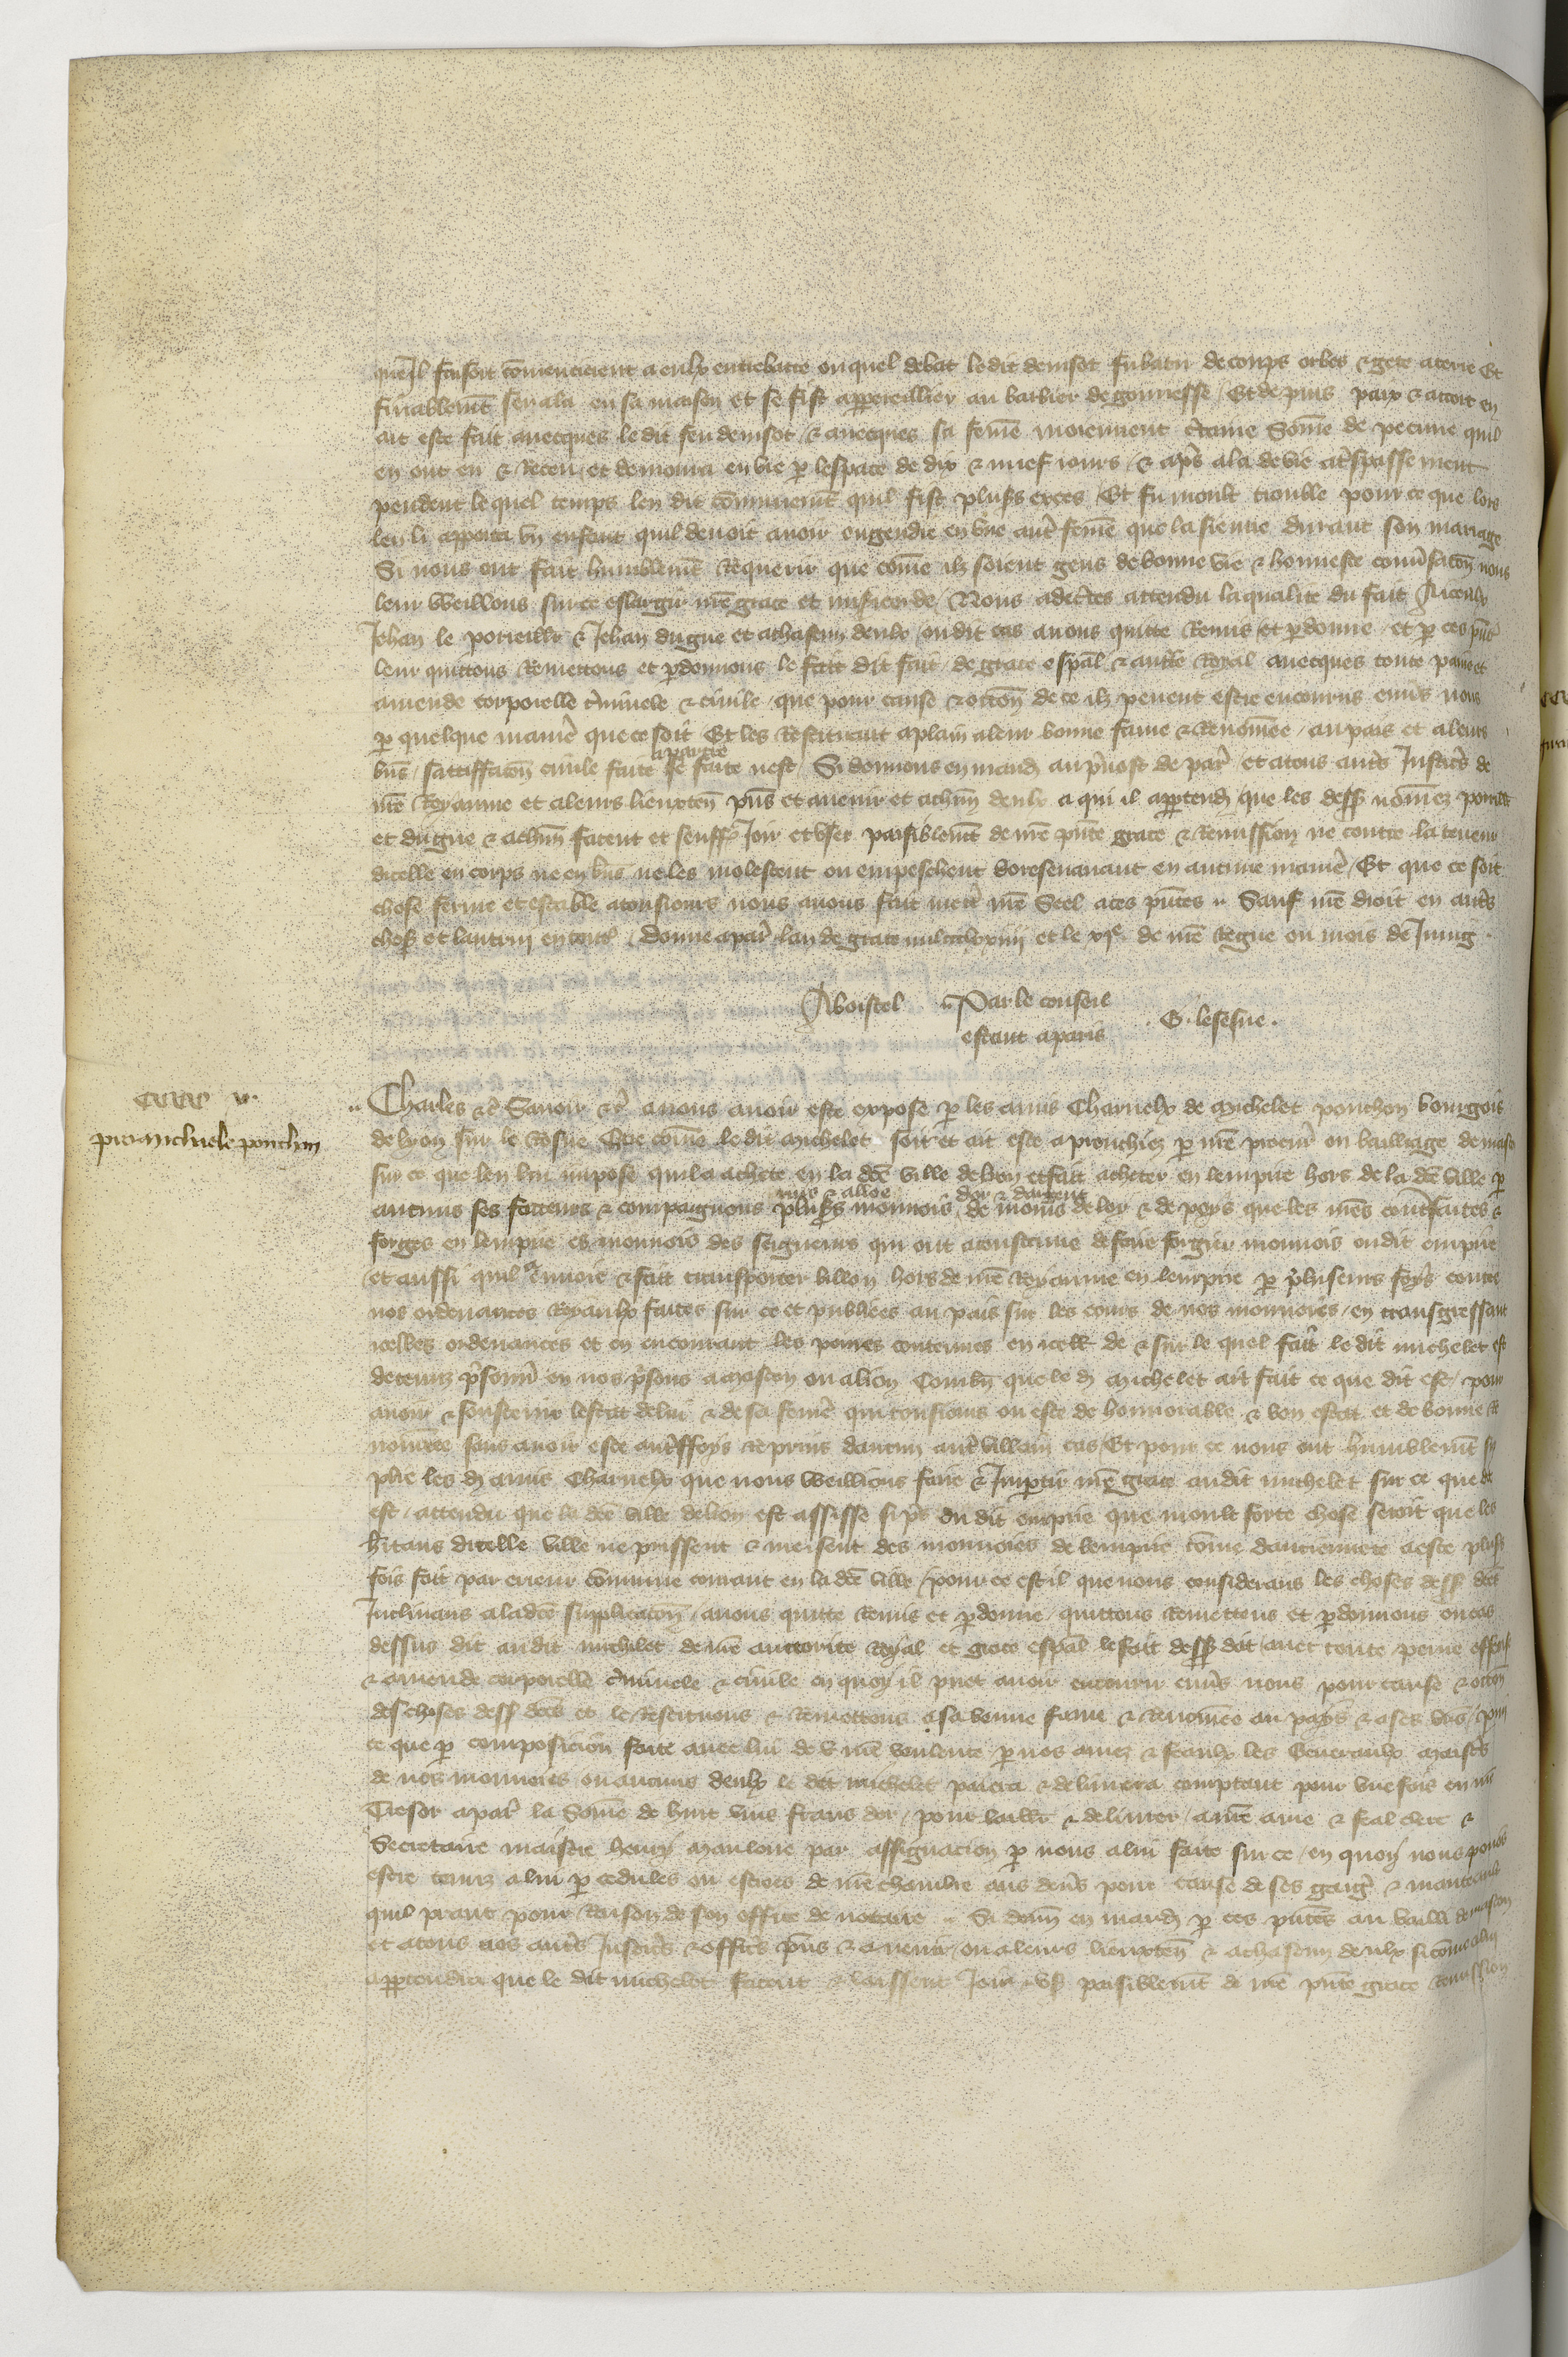 quē Il faisoit cōmencierent a eulx entrebatre ou quel debat ledit denisot fu batu de coups orbes & gete a terre Et
finablemēt sen ala en sa maison et se fist apareillier au barbier de gonnesse / Et de puis paix & accort en
ait este fait auecques le dit feu denisot / & auecques sa femē moiennent cˀtaine Somē de pecune quil
en ont eu & Receu / et demoura en vie p lespace de dix & nuef iours / & apˀs ala de vie a tˀspassement
pendent le quel temps len dit cōmunemēt quil fist plusˀs exces / Et fu moult trouble pour ce que lors
len li apporta vn enfant quil deuoit auoir engendre en vne autˀ femē que la sienne durant son mariage
Si nous ont fait humblemēt Requerir que comē ilz soient gens de bonne vie & honneste conuˀsacōn nous
leur Weillons sur ce eslargir nrē grace et miscorde / Nous adecˀtes attendu la qualite du fait / A iceulx
Jehan le poticillr & Jehan dugue et a chascun deulx / ou dit cas auons quitte Remis et pdonne / et p ces pnˀt
leur quittons Remettons et pdonnons le fait dit fait / de grace espāl & auctˀe Royal auecques toute paine et
amende corporelle cˀminele & ciuile / que pour cause & occōn de ce ilz peuent estre encourus enuˀs nous
p quelque manierˀ que ce soit Et les Restituant a plain a leur bonne fame & Renomēe / au pais et a leurs
bns̄ / sattiffacōn ciuile faitt a partie se faite nest / Si donnons en mandˀ au pˀuost de parˀ / et a tous autrˀs Justicˀs de
nrē Royaume et a leurs lieuxtenˀ pns̄ et auenir et a chūn deulx a qui il appˀtendˀ / que les dessˀ nomēz poticillr
et dugue & a chūn facent et seuffrˀ Joir et vser paisiblemēt de nrē pntē grace & Remission ne contre la teneur
dicelle en corps ne en bns̄ ne les molestent ou empeschent doresenauant en aucune manierˀ / Et que ce soit
chose ferme et estable a tousiours nous auons fait mettrˀ nrē Seel a ces pntēs .. Sauf nrē droit en autrˀs
chosˀ et lautrui en toutˀ / Donne a parˀ lan de grace mil ccclxxiiij et le xjᵉ de nrē Regne ou mois de Juing .
A boistel .. Par le conseil
estant a paris . G . lesesne .
CCCCC v.
pro michaele ponchon
.. Charles &cˀ Sauoir &cˀ a nous auoir este expose p les amis Charnelx de Michelet ponchon bourgois
de lyon sur le Rosne Que comē le dit michelet soit et ait este aprouchiez p nrē procurˀ ou bailliage de masc
sur ce que len lui impose quil a achete en la dcē ville de lyon et fait acheter en lempire hors de la dcē ville p
mis & alloe dor & dargent
aucuns ses facteurs & compaignons plusˀs monnoiˀ de moinsˀ de loy & de poys que les nrēs contˀfaites &
forges en lempire es monnoiˀ des seigneurs qui ont acoustume de faire forgier monnoiˀ ou dit empire
et aussi quil a enuoie & fait transporter billon hors de nrē Royaume en lempire p plusieurs foys contre
nos ordenances Royaulx faites sur ce et publiees au pais sur les cours de nos monnoies / en transgressant
icelles ordenances et en encourant les peines contenues en icellˀ de & sur le quel fait le dit michelet est
detenuz pˀsonniˀ en nos pˀsons a mascon ou a lion Combnˀ que le dˀ Michelet ait fait ce que dit est / pour
auoir & soustenir lestat de lui & de sa femē qui tousiours ou este de honnorable & bon estat et de bonne Re
nomēe sans auoir este autˀffoys reprins daucun autˀ villain cas / Et pour ce nous ont humblemēt su
plie les dˀ amis Charnelx que nous weillions faire & Impartir nrē grace au dit michelet sur ce que dit
est / attendu que la dcē ville de lion est assisse si pˀs du dit empire que moult forte chose seroit que les
hˀitans dicelle ville ne prissent & meissent des monnoies de lempire comē dancienneté a este plusˀ
fois fait par erreur cōmune courant en la dcē ville / pour ce est il que nous considerans les choses dessˀ dcēs
Inclinans a la dcē supplicacōn / auons quitte Remis et pdonne / quittons Remettons et pdonnons ou cas
dessus dit au dit michelet de nrē auctorite Royal et grace espāl le fait dessˀ dit / auec toute peine offense
& amende corporelle cˀminele & ciuile en quoy il puet auoir encouru enuˀs nous pour cause & occōn
des choses dessˀ dcēs et le Restituons & Remettons a sa bonne fame & Renomēe au pays & a ses bns̄ / pmi
ce que p composicion faite auec lui de nrē voulente p nos amez & feaulx les Generaulx Maistˀs
de nos monnoies ou aucuns deulx le dit michelet paiera & deliurera comptant pour vne fois en nrē
Tresor a parˀ la Somē de huit vins frans dor / pour baillˀ & deliurer / a nrē ame & feal clerc &
Secretaire maistre henry Mauloue par assignacion p nous a lui faite sur ce / en quoy nous pouōs
estre tenuz a lui p cedules ou escroes de nrē chambre aus denˀs pour cause de ses gaigˀ & manteaux
quil prant pour Raison de son office de notaire .. Si donn̄ en mandˀ p ces pntēs au bailli de mascon
et a tous nos autrˀs Justicˀs & officˀs pns̄ & auenir / ou a leurs lieuxtenˀ & a chascun deulx si comē a lui
appˀtendra que le dit michelet facent & laissent Joir & vsˀ paisiblemēt de nrē pntē grace Remission